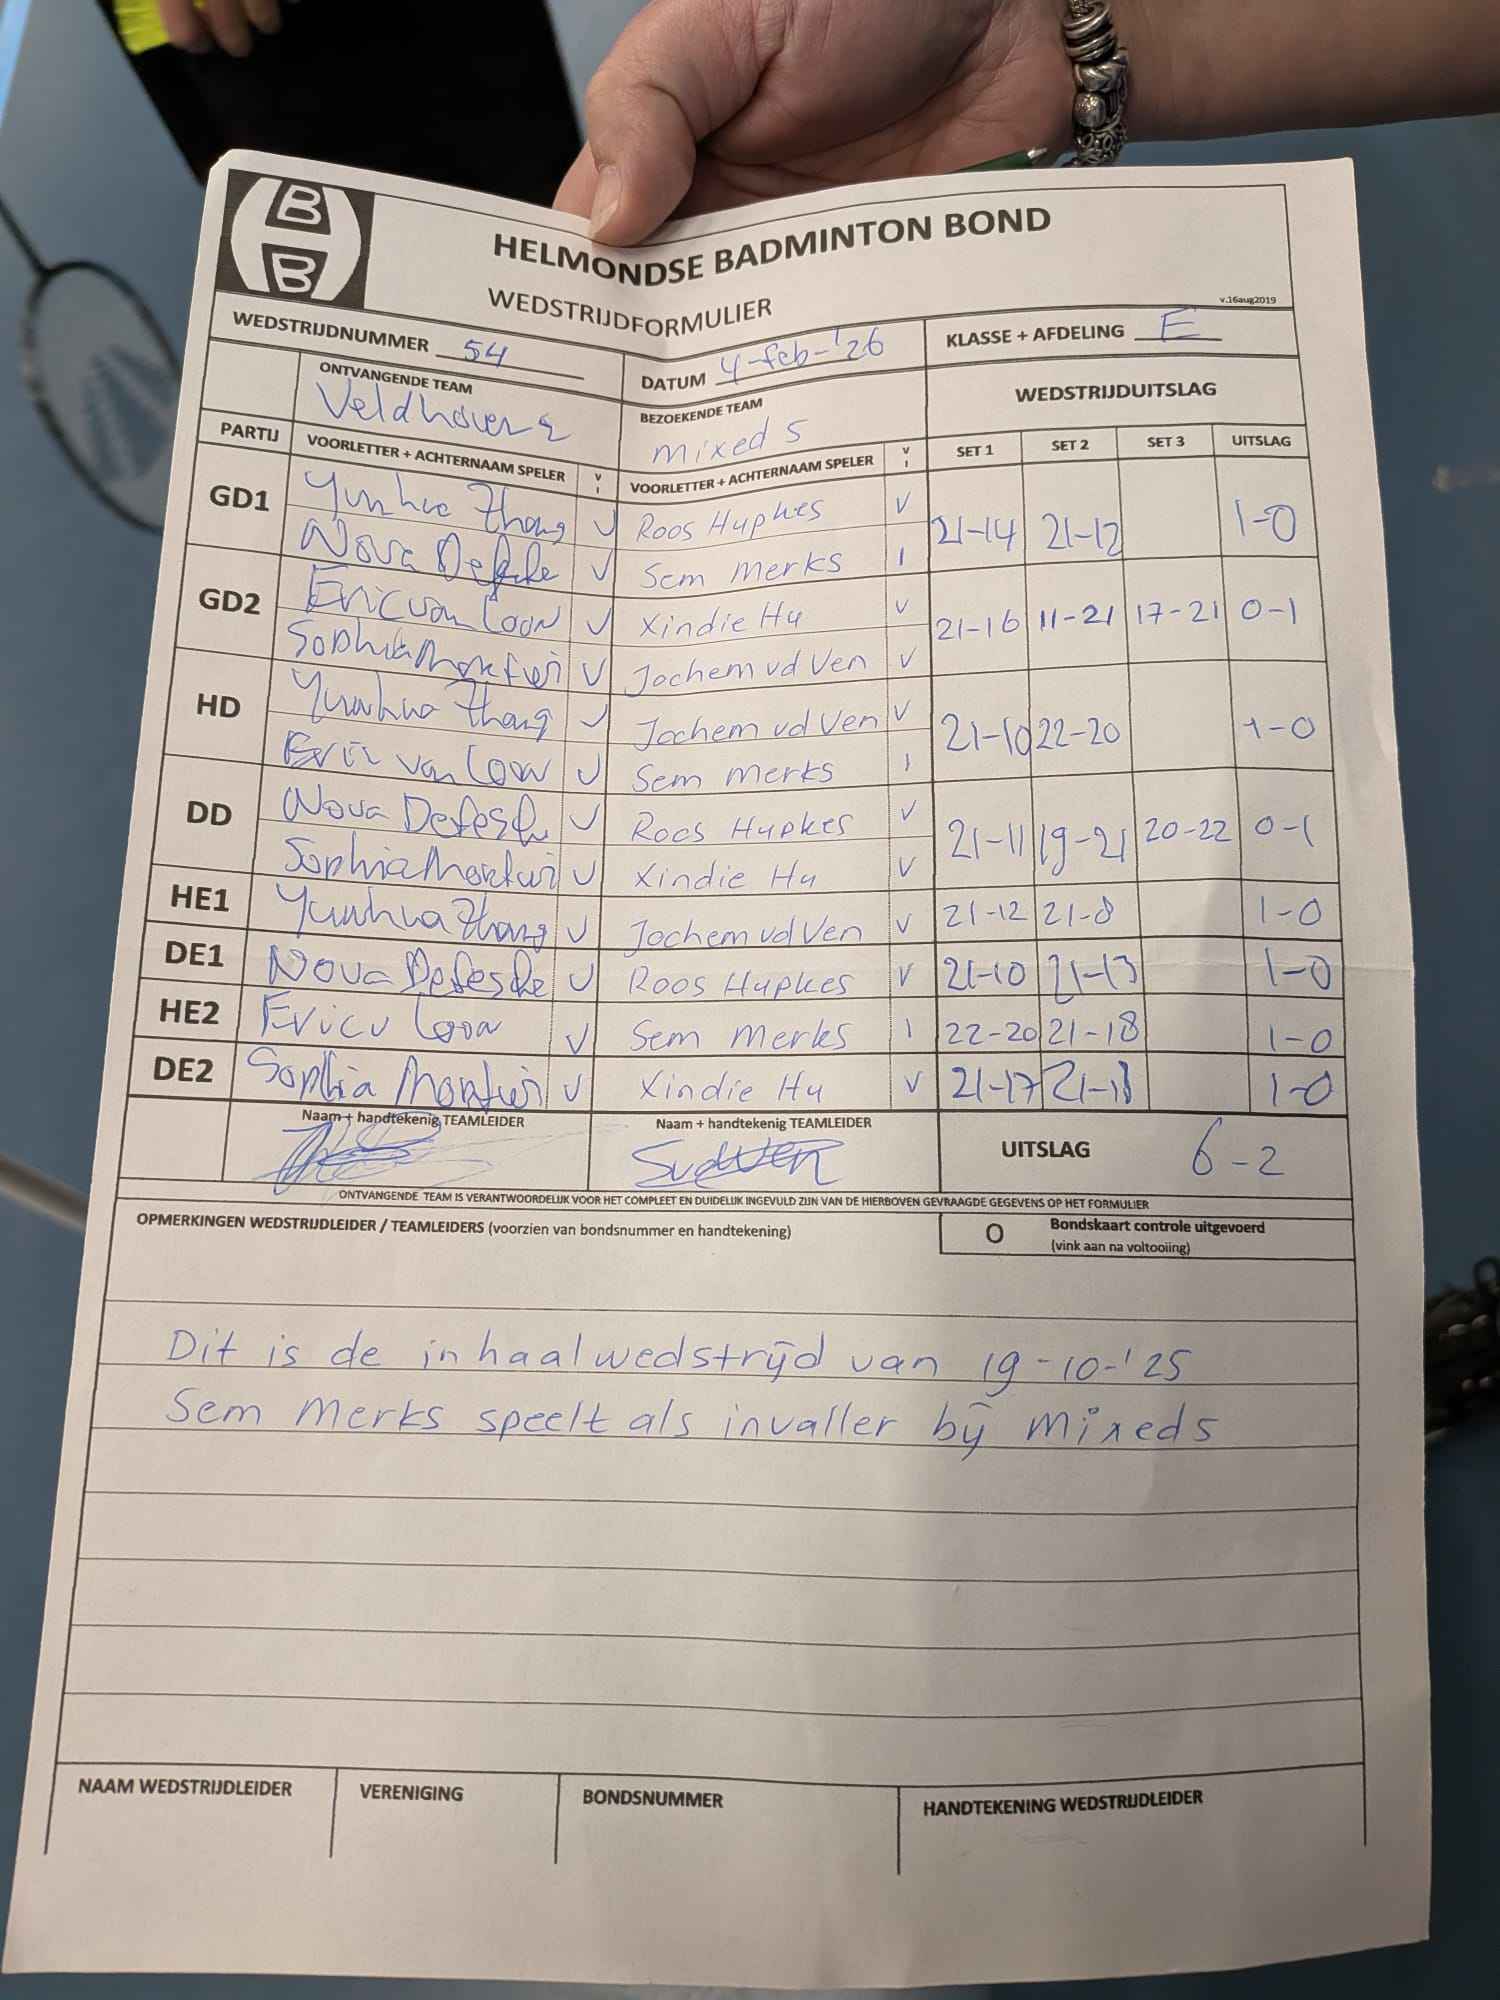 B
B
HELMONDSE BADMINTON BOND
WEDSTRIJDFORMULIER
v.16aug2019
WEDSTRIJDNUMMER 54
DATUM 4-feb-'26
KLASSE + AFDELING E
ONTVANGENDE TEAM
Veldhoven 2
BEZOEKENDE TEAM
mixed 5
WEDSTRIJDUITSLAG
PARTIJ VOORLETTER + ACHTERNAAM SPELER V I VOORLETTER + ACHTERNAAM SPELER V I SET 1 SET 2 SET 3 UITSLAG
GD1 Yunhua Zhang V Roos Hupkes V 21-14 21-12 1-0
Nova Defesche V Sem Merks I
GD2 Eric van Loon V Xindie Hu V 21-16 11-21 17-21 0-1
Sophia V Jochem vd Ven V
HD Yunhua Zhang V Jochem vd Ven V 21-10 22-20 1-0
Eric van Loon V Sem Merks I
DD Nova Defesche V Roos Hupkes V 21-11 19-21 20-22 0-1
Sophia V Xindie Hu V
HE1 Yunhua Zhang V Jochem vd Ven V 21-12 21-8 1-0
DE1 Nova Defesche V Roos Hupkes V 21-10 21-13 1-0
HE2 Eric v Loon V Sem Merks I 22-20 21-18 1-0
DE2 Sophia V Xindie Hu V 21-17 21-18 1-0
Naam + handtekenig TEAMLEIDER
Naam + handtekenig TEAMLEIDER
UITSLAG 6-2
ONTVANGENDE TEAM IS VERANTWOORDELIJK VOOR HET COMPLEET EN DUIDELIJK INGEVULD ZIJN VAN DE HIERBOVEN GEVRAAGDE GEGEVENS OP HET FORMULIER
OPMERKINGEN WEDSTRIJDLEIDER / TEAMLEIDERS (voorzien van bondsnummer en handtekening)
O Bondskaart controle uitgevoerd
(vink aan na voltooiing)
Dit is de inhaalwedstrijd van 19-10-'25
Sem Merks speelt als invaller bij Mixed 5
NAAM WEDSTRIJDLEIDER VERENIGING BONDSNUMMER HANDTEKENING WEDSTRIJDLEIDER